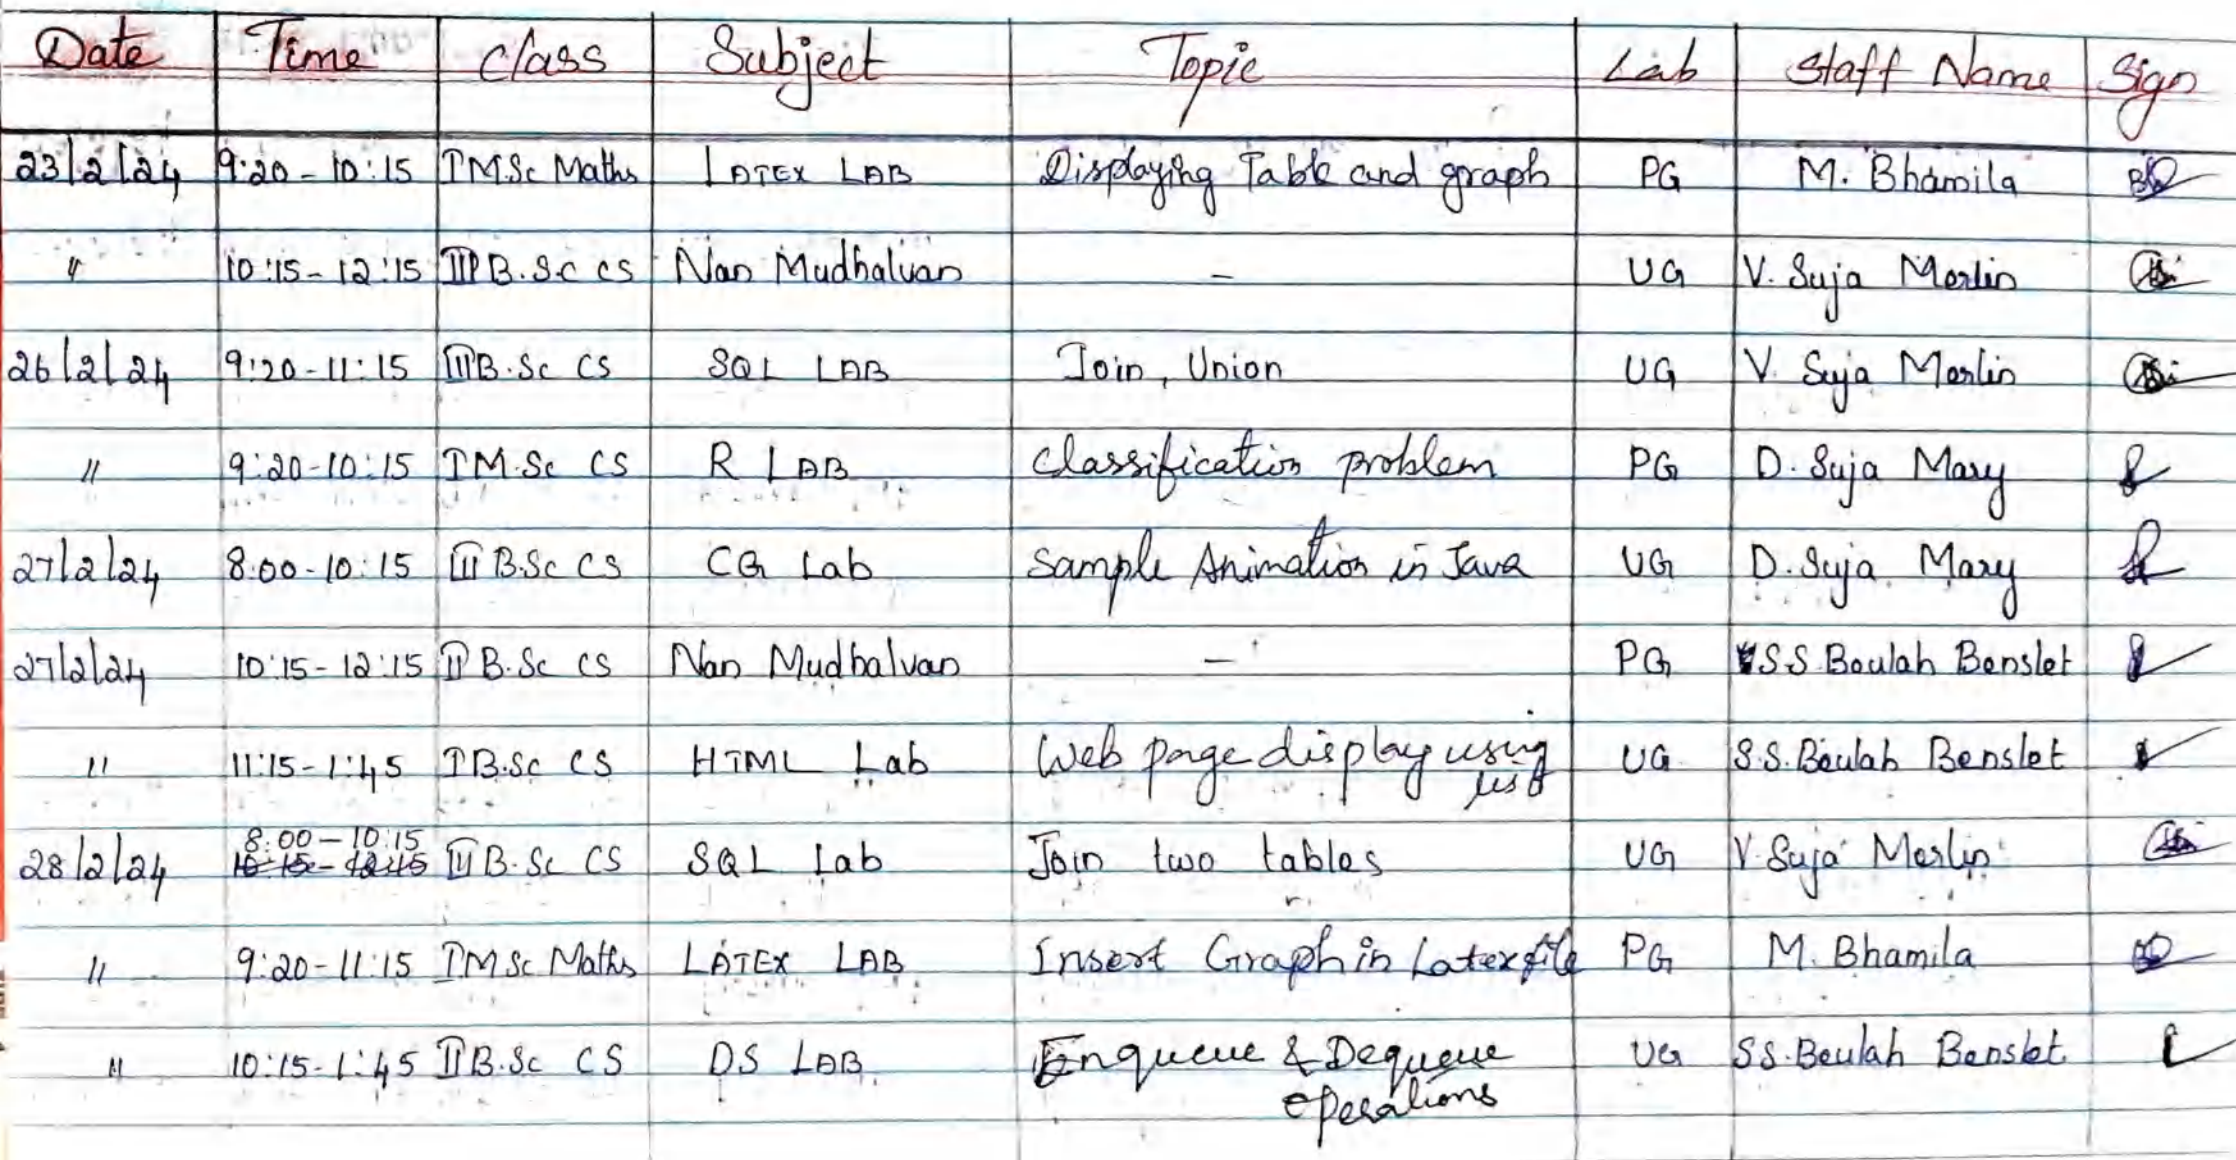 Date Time Class Subject Topic Lab Staff Name Sign
23/2/24 9:20-10:15 I M.Sc Maths LATEX LAB Displaying Table and graph PG M. Bhamila
" 10:15-12:15 III B.Sc CS Nan Mudhalvan - UG V. Suja Merlin
26/2/24 9:20-11:15 III B.Sc CS SQL LAB Join, Union UG V. Suja Merlin
" 9:20-10:15 I M.Sc CS R LAB Classification problem PG D. Suja Mary
27/2/24 8:00-10:15 III B.Sc CS CG Lab Sample Animation in Java UG D. Suja Mary
27/2/24 10:15-12:15 II B.Sc CS Nan Mudhalvan - PG S.S Beulah Benslet
" 11:15-1:45 I B.Sc CS HTML Lab Web page display using UG S.S. Beulah Benslet
list
8:00-10:15
28/2/24 10:15-12:15 III B.Sc CS SQL Lab Join two tables UG V. Suja Merlin
" 9:20-11:15 I M Sc Maths LATEX LAB Insert Graph in Latex file PG M. Bhamila
" 10:15-1:45 II B.Sc CS DS LAB Enqueue & Dequeue UG S.S. Beulah Benslet
operations